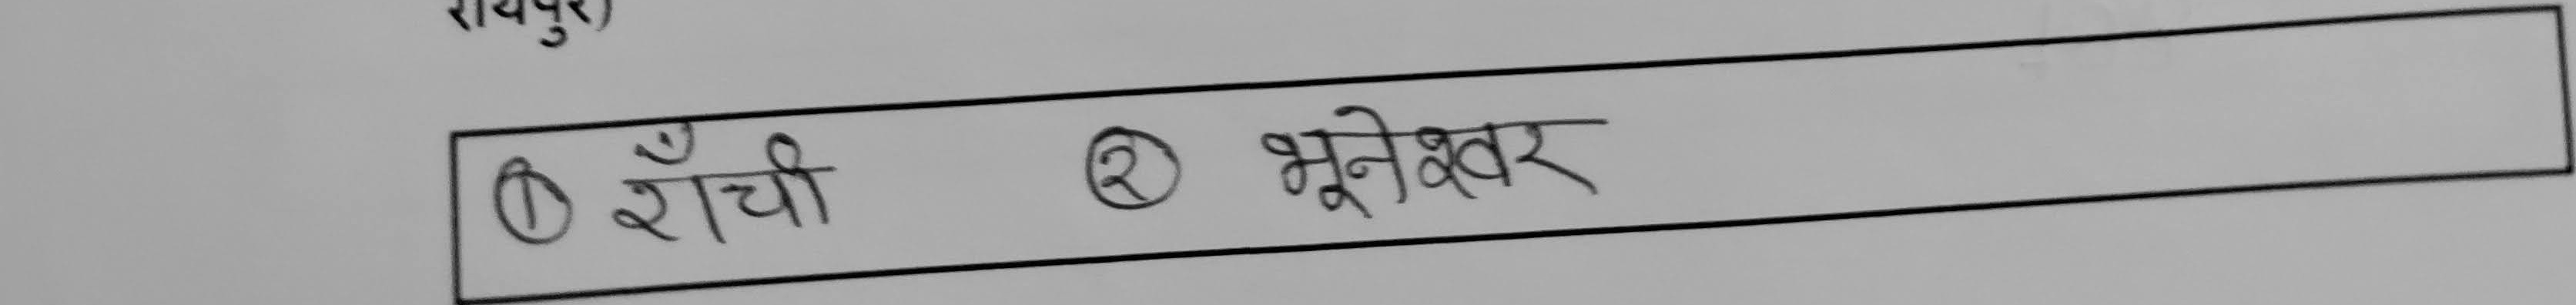 रायपुर)
① राँची ② भूनेश्वर